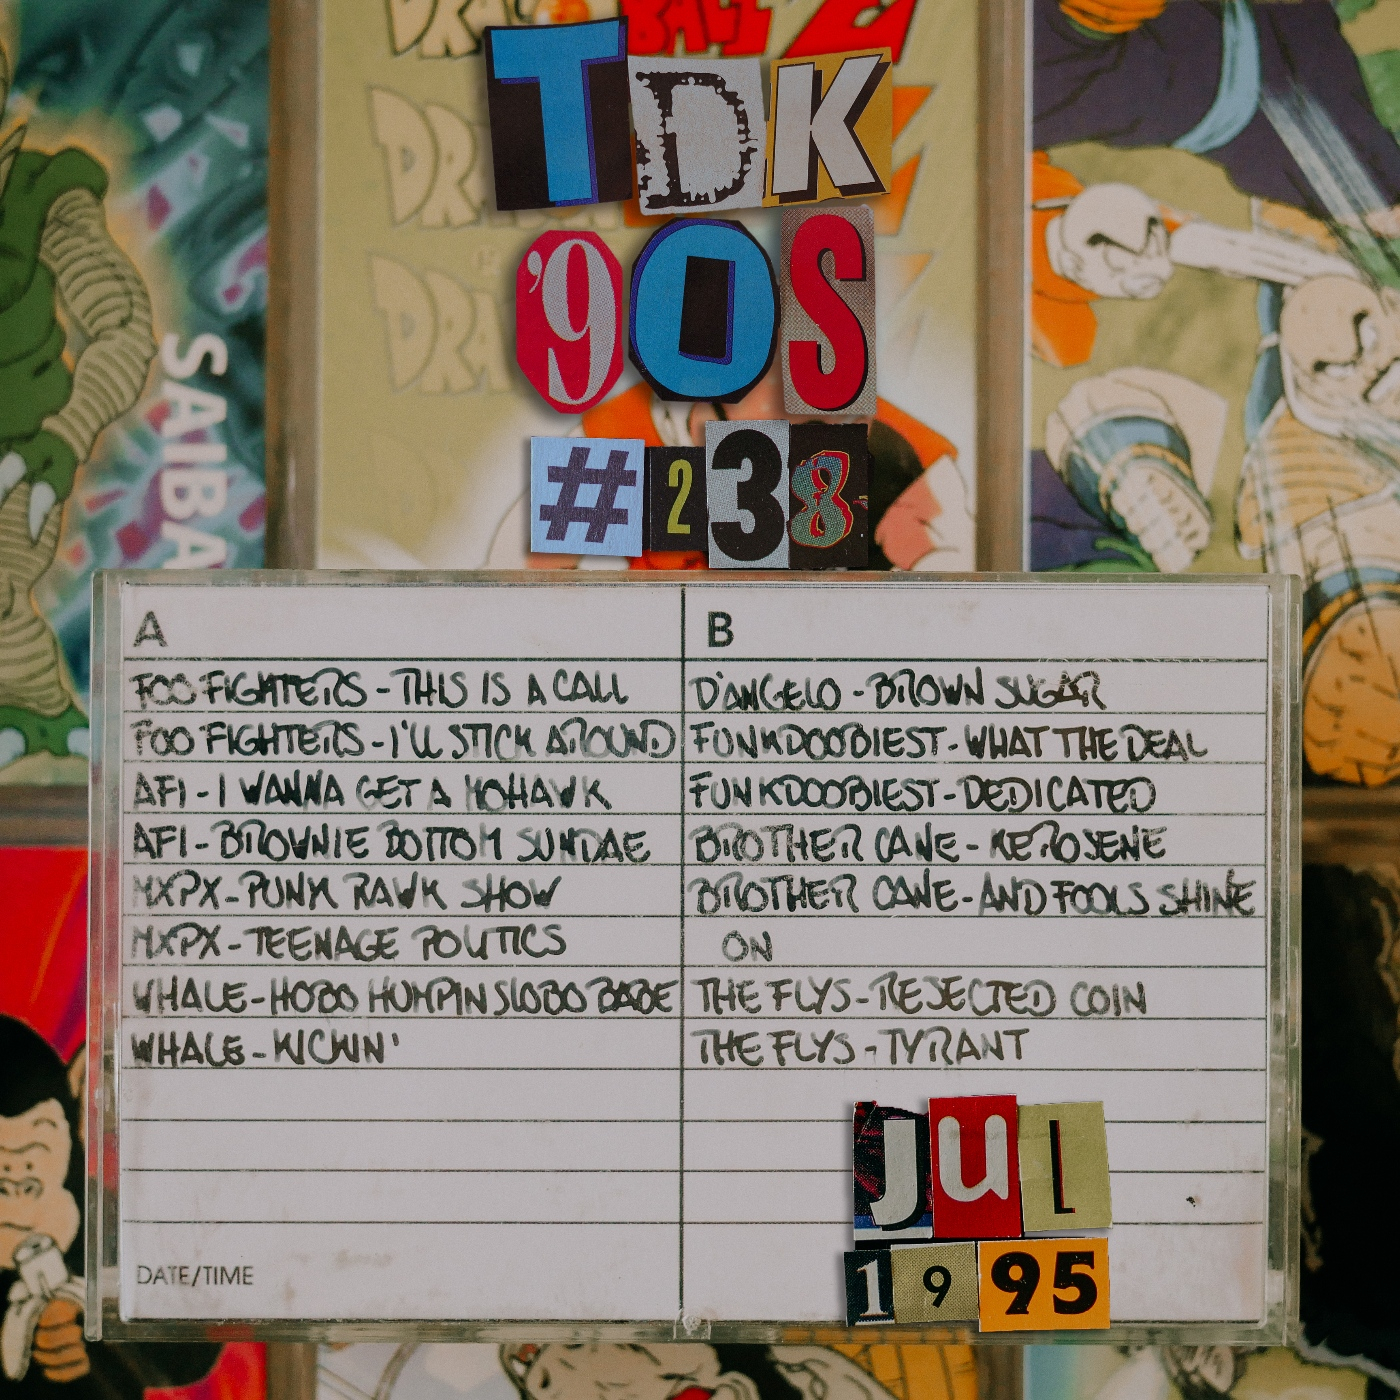 DRAGON BALL Z
TDK
'90S
#238
SAIBA
A
FOO FIGHTERS - THIS IS A CALL
FOO FIGHTERS - I'LL STICK AROUND
AFI - I WANNA GET A MOHAWK
AFI - BROWNIE BOTTOM SUNDAE
MXPX - PUNK RAWK SHOW
MXPX - TEENAGE POLITICS
WHALE - HOBO HUMPIN SLOBO BABE
WHALE - KICKIN'
DATE/TIME
B
D'ANGELO - BROWN SUGAR
FUNKDOOBIEST - WHAT THE DEAL
FUNKDOOBIEST - DEDICATED
BROTHER CANE - KEROSENE
BROTHER CANE - AND FOOLS SHINE
ON
THE FLYS - REJECTED COIN
THE FLYS - TYRANT
JUl
1995